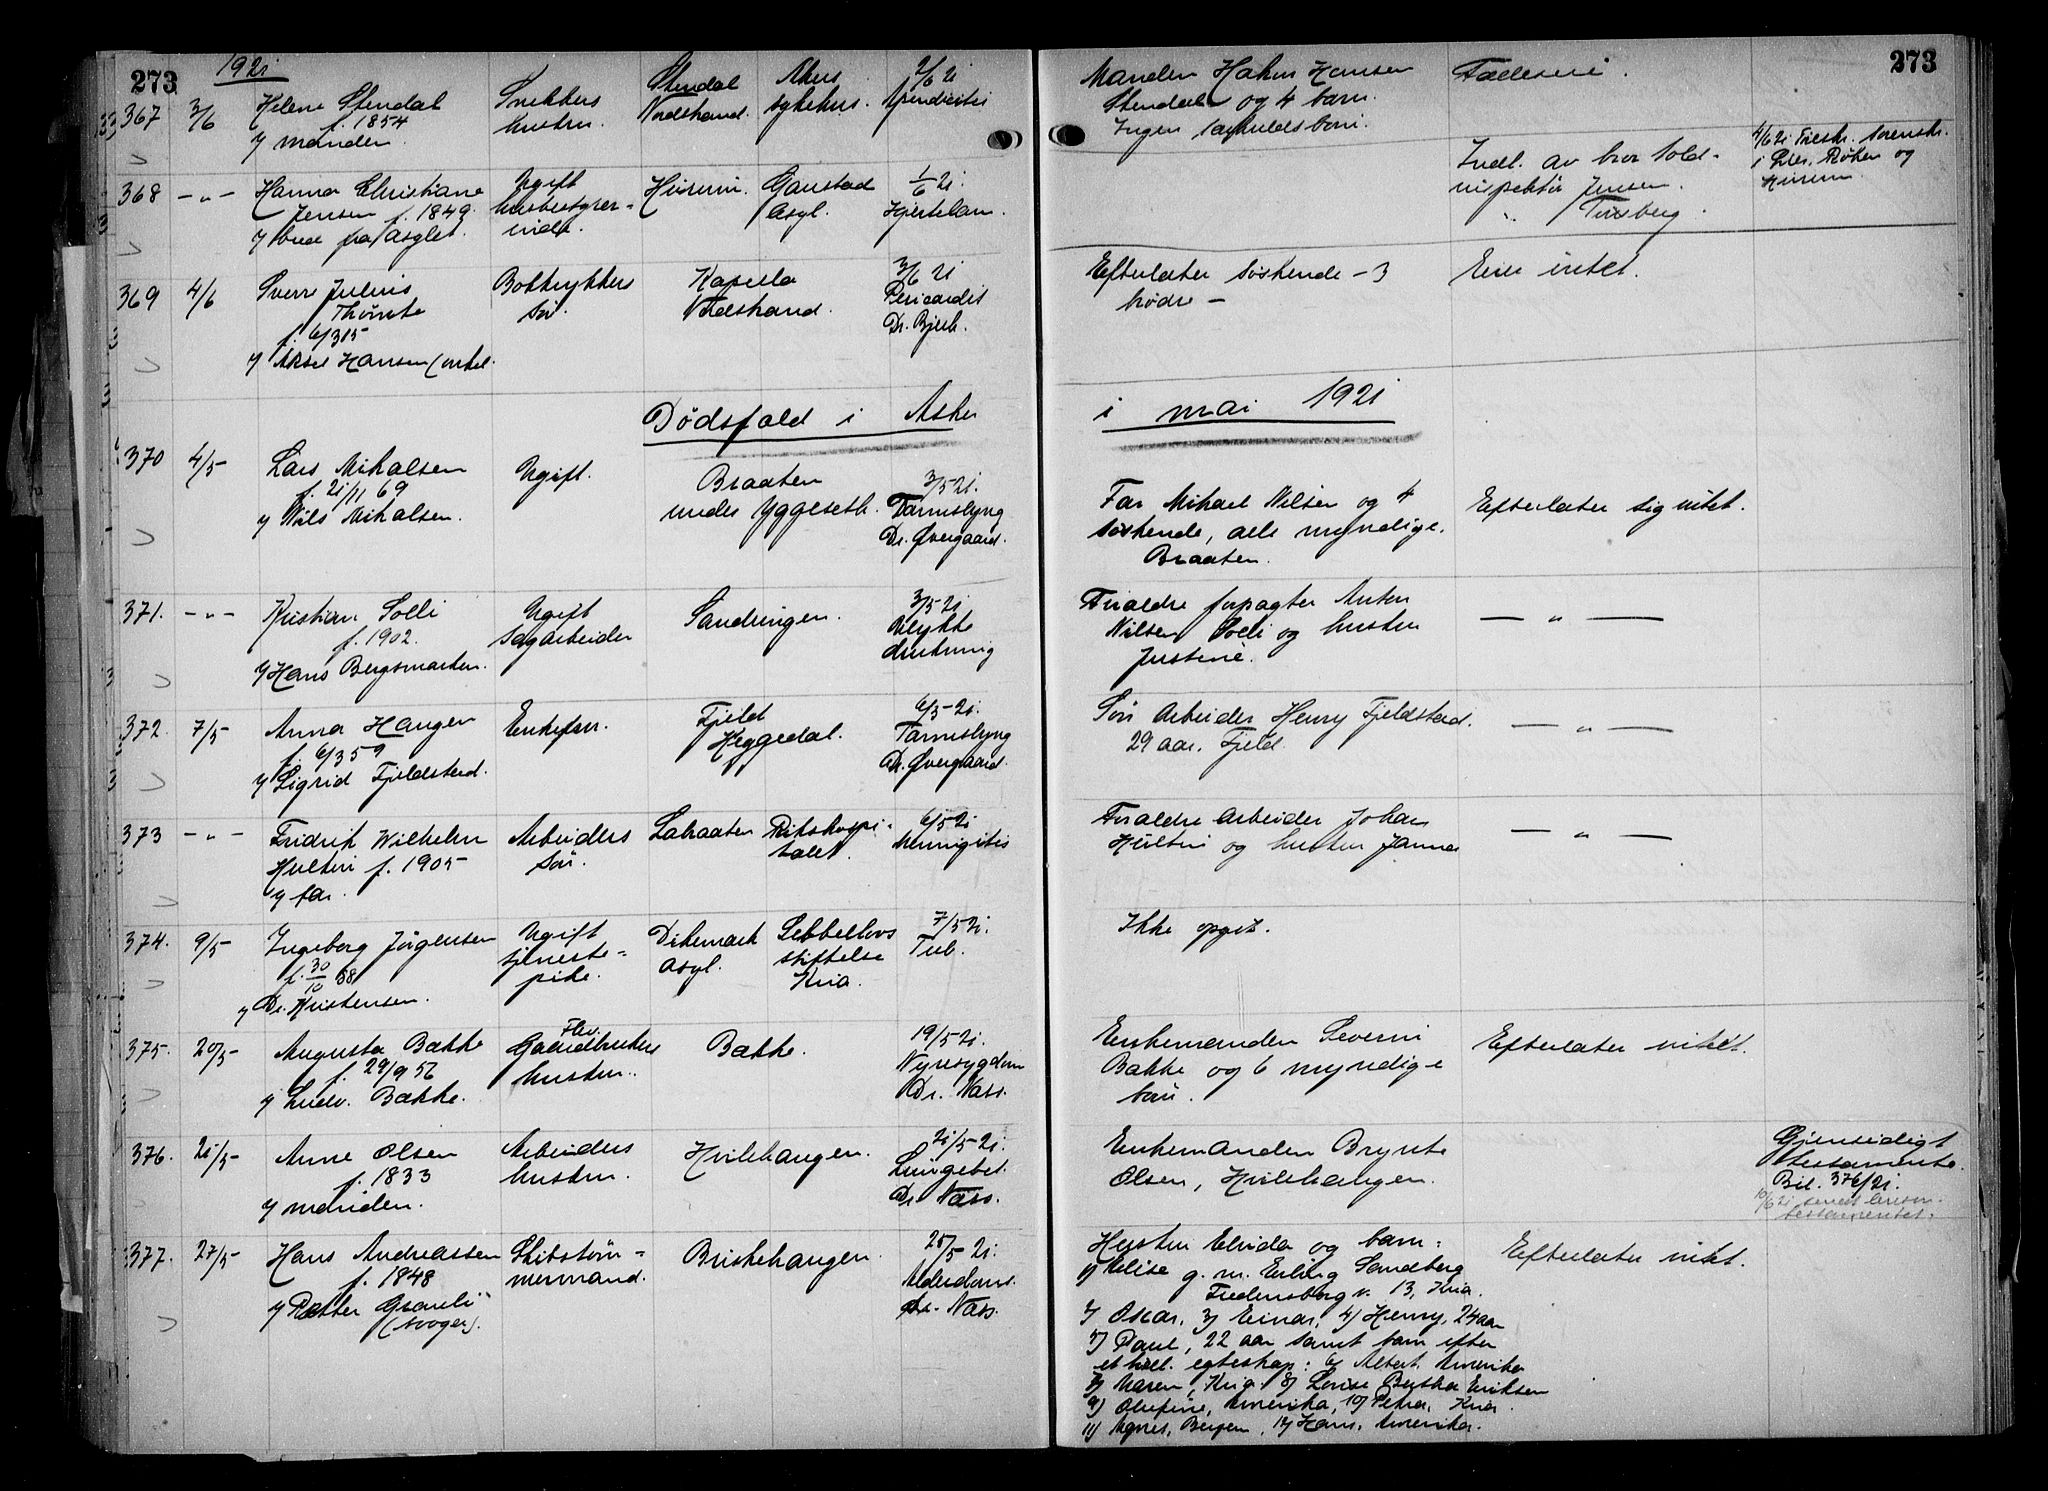 273
1921
273
367
3/6
Helene Stendal
f. 1854
v/ manden.
Snekkers
hustru.
Stendal
Nordstrand.
Akers
sykehus.
2/6 21
Apendicitis
Manden Hakon Hansen
Stendal og 4 barn.
Ingen særkuldsbarn.
Fælleseie.
368
— „ —
Hanna Christiane
Jensen f. 1849.
v/ bud fra Asylet.
Ugift
husbestyrer-
inde.
Hurum.
Gaustad
Asyl.
1/6 21.
Hjertelam.
Indl. av bror told-
inspektør Jensen.
Tønsberg.
4/6 21 Tilskr. sorenskr.
i Lier, Røken og
Hurum.
369
4/6
Sverre Julius
f. 6/3 15
v/ Aksel Hansen (onkel.
Boktrykkers
søn.
Kapella
Nordstrand.
3/6 21
Pericardit
Dr. Bjerk.
Efterlater søskende - 3
brødre -
Eier intet.
Dødsfald i Asker
i mai 1921
370
4/5
Lars Mikalsen
f. 21/11 69
v/ Nils Mikalsen.
Ugift.
Braaten
under Yggeseth.
3/5 21.
Tarmslyng
Dr. Øvergaard.
Far Mikael Nilsen og 4
søskende, alle myndige.
Braaten.
Efterlater sig intet.
371.
— „ —
Kristian Solli
f. 1902.
v/ Hans Bergsmarken.
Ugift
sagarbeider
Sandungen.
3/5 21
Ulykke
drukning
Forældre forpagter Anton
Nilsen Solli og hustru
Justine.
— „ —
372.
7/5
Anna Haugen
f. 6/3 59
v/ Sigrid Fjeldstad.
Enkefru.
Fjeld
Heggedal.
6/5 21.
Tarmslyng
Dr. Øvergaard.
Søn Arbeider Henry Fjeldstad.
29 aar. Fjeld.
— „ —
373
— „ —
Fridrik Wilhelm
Hultin f. 1905
v/ far.
Arbeiders
søn.
Labraaten
Rikshospi-
talet.
6/5 21
Meningitis
Forældre Arbeider Johan
Hultin og hustru Janna
— „ —
374.
9/5
Ingeborg Jørgensen
f. 30/10 88
v/ Dr. Kristensen.
Ugift
tjeneste-
pike.
Dikemark
Asyl.
Sebbelows
stiftelse
Kria.
7/5 21.
Tub.
Ikke opgit.
375.
20/5
Augusta Bakke
f. 29/9 56
v/ Ludv. Bakke.
Flev.
Gaardbrukers
hustru.
Bakke.
19/5 21.
Nyresygdom
Dr. Næss.
Enkemanden Severin
Bakke og 6 myndige
barn.
Efterlater intet.
376.
21/5
Anne Olsen
f. 1833
v/ manden.
Arbeiders
hustru.
Hvilehaugen.
21/5 21.
Lungebet.
Dr. Næss.
Enkemanden Brynte
Olsen, Hvilehaugen.
Gjensidigt
testamente.
Bil. 376/21.
10/6 21 sendt
testamentet.
377.
27/5
Hans Andreassen
f. 1848
v/ Petter Graali
(svoger).
Skibstøm-
mermand.
Briskehaugen.
25/5 21.
Alderdoms.
Dr. Næss.
Hustru Elvida og barn:
1/ Elise g. m. Erling Sandberg
Fredensborg v. 13, Kria.
2/ Oscar, 3/ Einar, 4/ Henry, 24 aar
5/ Paul, 22 aar samt barn efter
et tidl. egteskap: 6/ Albert, Amerika
7/ Maren, Kria 8/ Lovise Bertha Eriksen
9/ Olufine, Amerika, 10/ Petra, Kria.
11/ Agnes, Bergen, 12/ Hans, Amerika.
Efterlater intet.